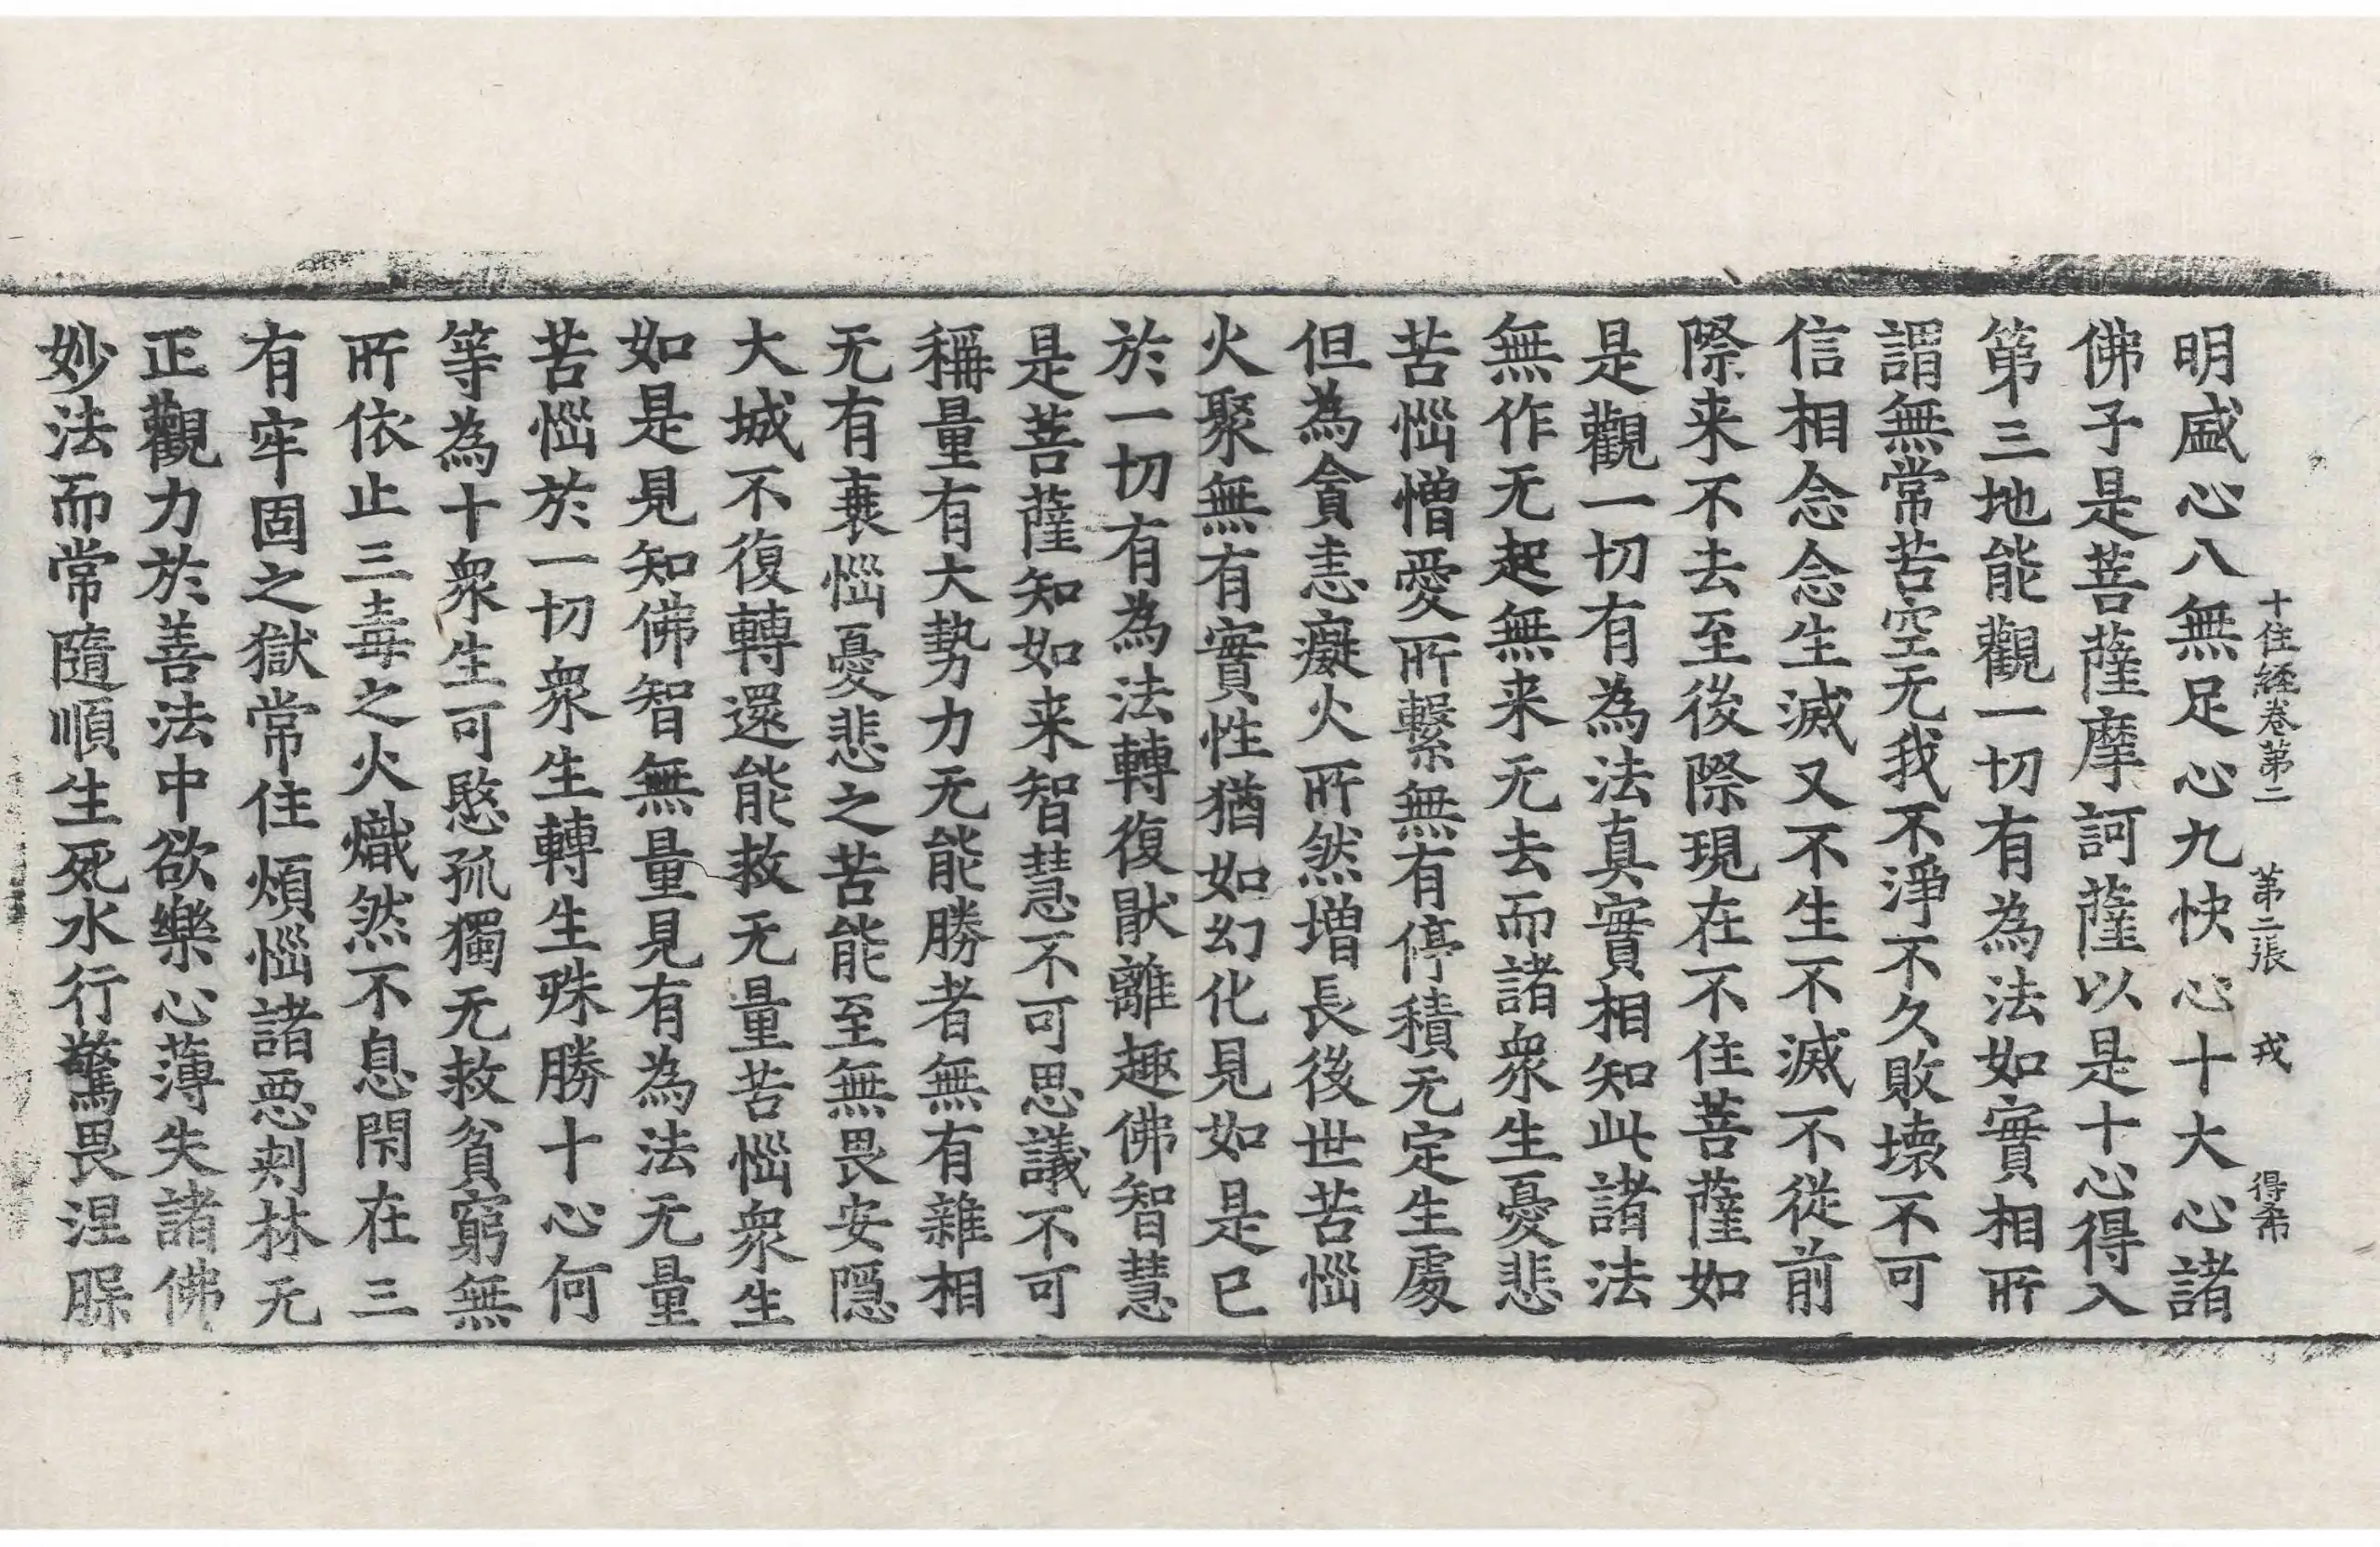 十住経卷第二 第二張 戎 得布
明盛心八無足心九快心十大心諸
佛子是菩薩摩訶薩以是十心得入
第三地能觀一切有為法如實相所
謂無常苦空无我不淨不久敗壞不可
信相念念生滅又不生不滅不從前
際来不去至後際現在不住菩薩如
是觀一切有為法真實相知此諸法
無作无起無来无去而諸衆生憂悲
苦惱憎愛所繫無有停積无定生處
但為貪恚癡火所然增長後世苦惱
火聚無有實性猶如幻化見如是已
於一切有為法轉復猒離趣佛智慧
是菩薩知如来智慧不可思議不可
稱量有大勢力无能勝者無有雜相
无有衰惱憂悲之苦能至無畏安隱
大城不復轉還能救无量苦惱衆生
如是見知佛智無量見有為法无量
苦惱於一切衆生轉生殊勝十心何
等為十衆生可愍孤獨无救貧窮無
所依止三毒之火熾然不息閇在三
有牢固之獄常住煩惱諸悪刺林无
正觀力於善法中欲樂心薄失諸佛
妙法而常隨順生死水行驚畏涅槃